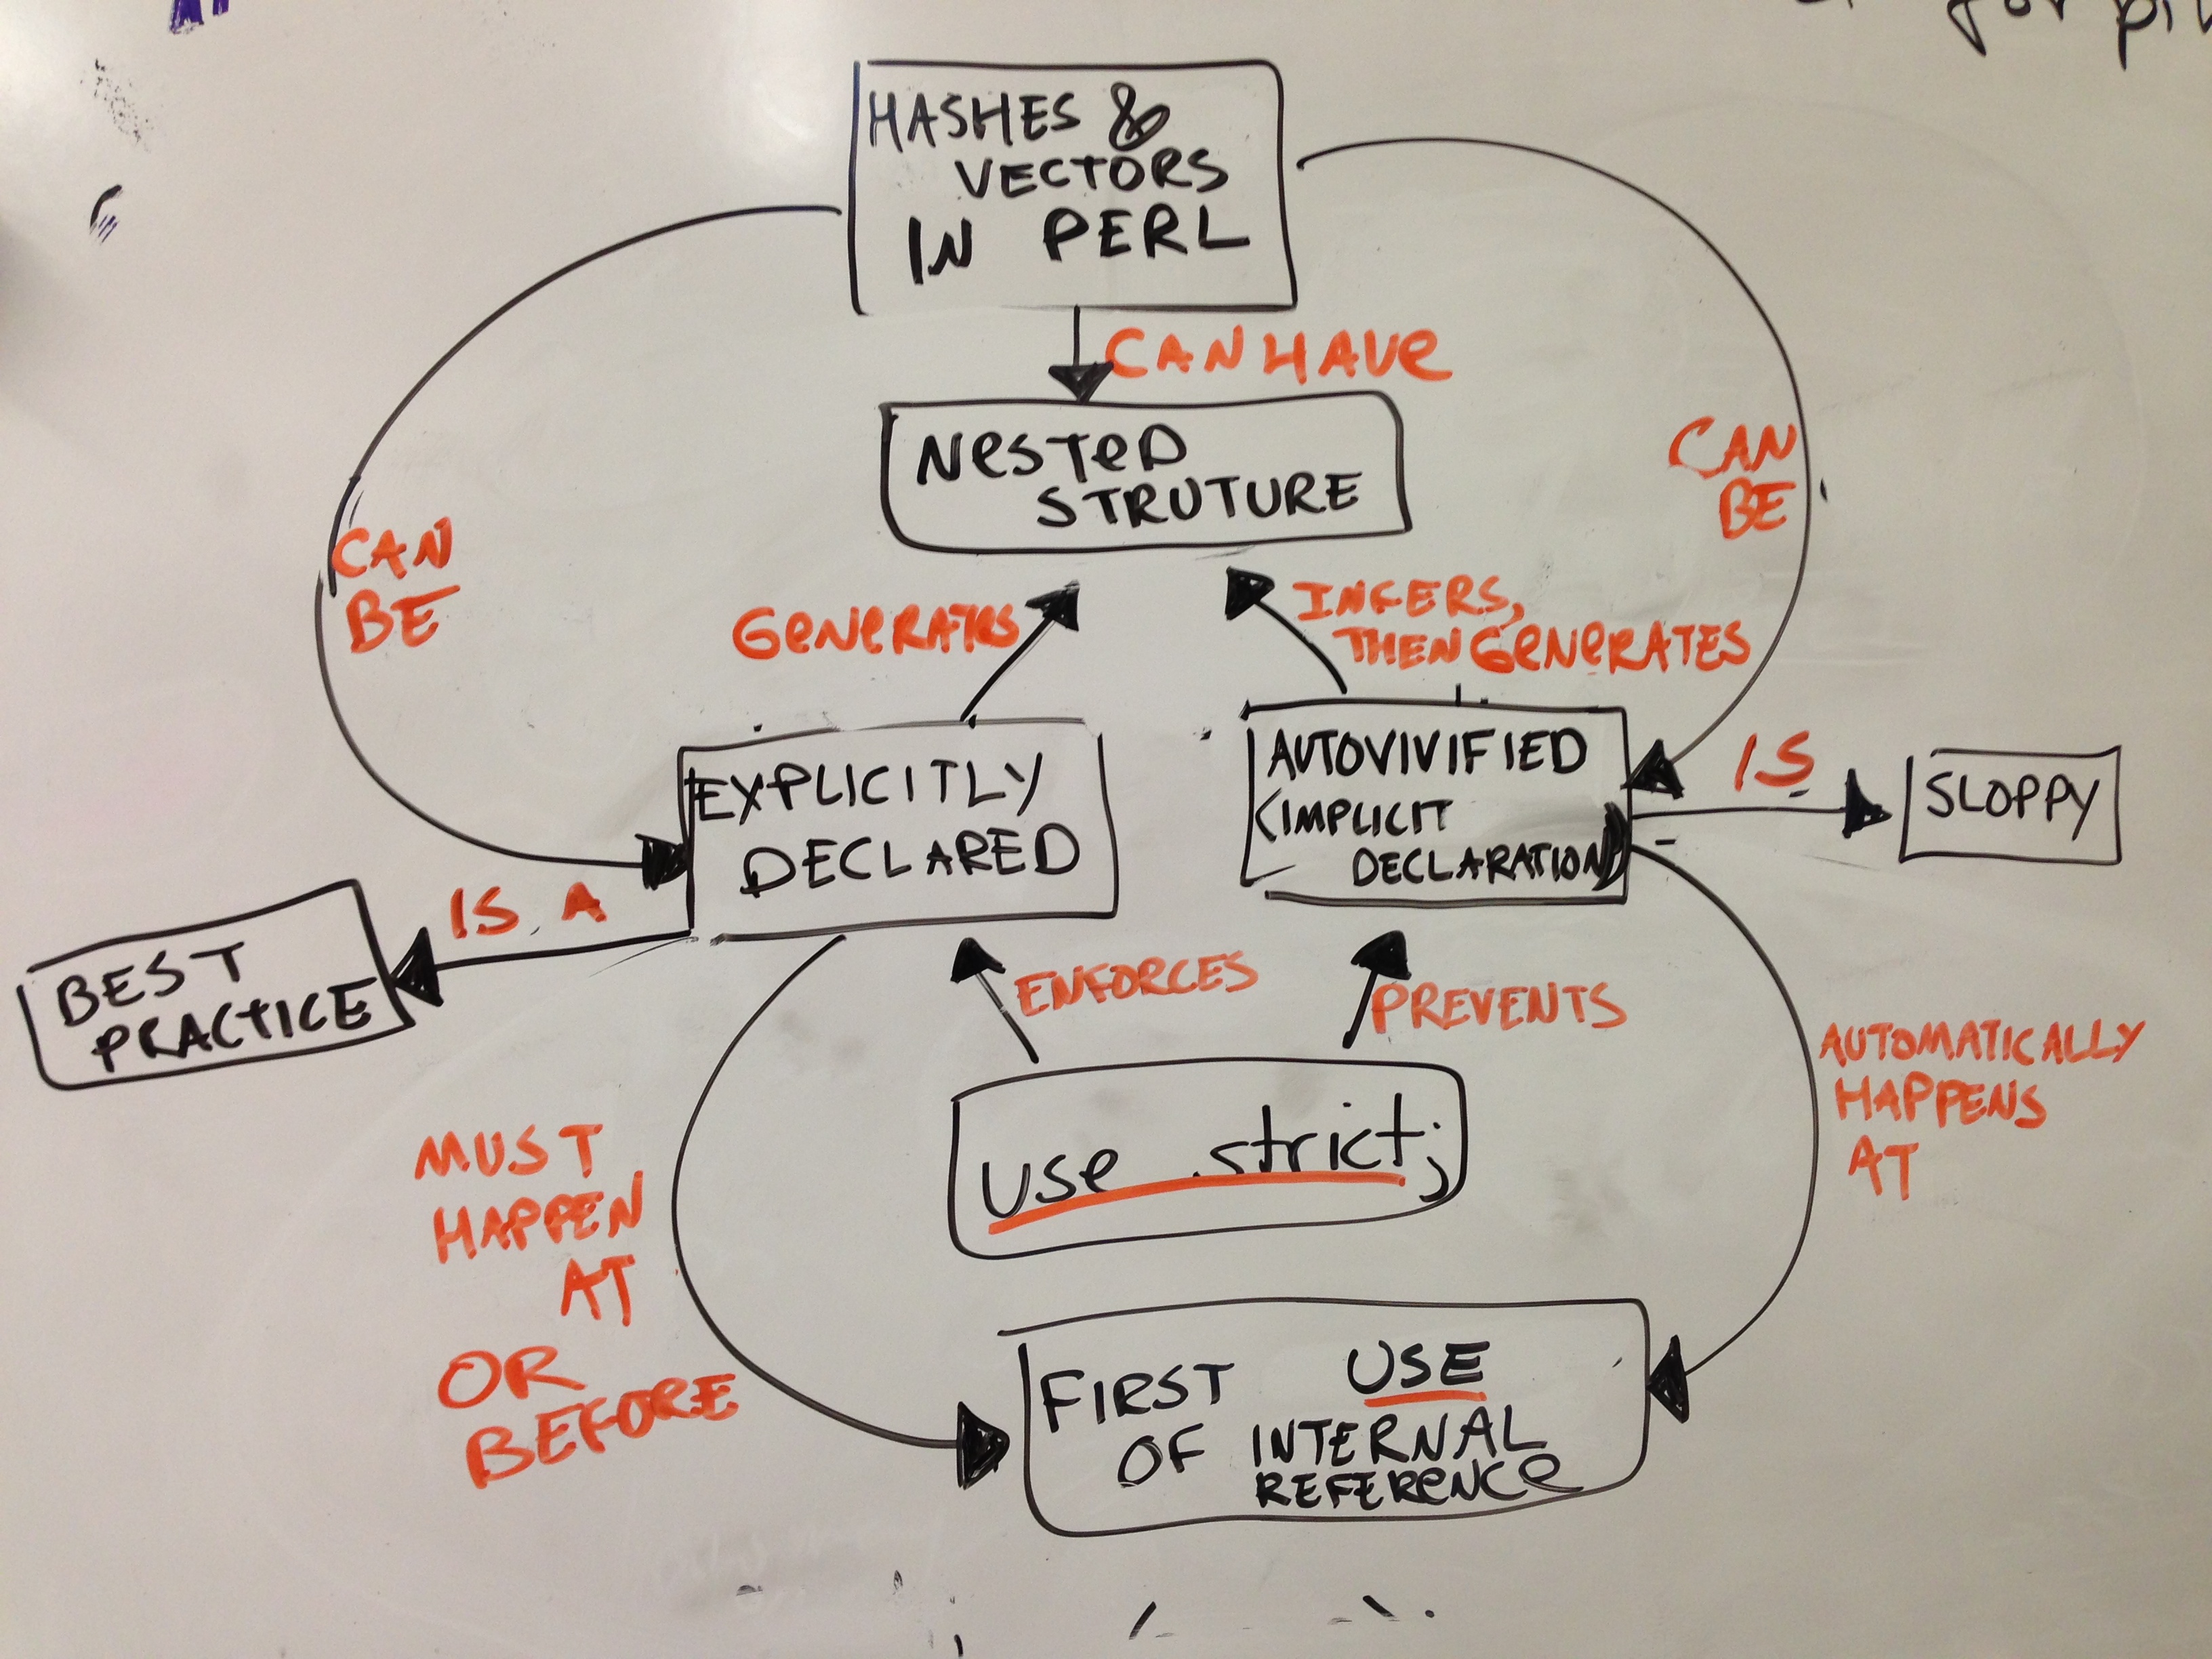 for
HASHES &
VECTORS
IN PERL
CAN HAVE
NESTED
STRUTURE
CAN
BE
CAN
BE
GENERATES
INFERS,
THEN GENERATES
EXPLICITLY
DECLARED
AUTOVIVIFIED
(IMPLICIT
DECLARATION)
IS
SLOPPY
IS A
BEST
PRACTICE
ENFORCES
PREVENTS
use strict;
MUST
HAPPEN
AT
OR
BEFORE
AUTOMATICALLY
HAPPENS
AT
FIRST USE
OF INTERNAL
REFERENCE